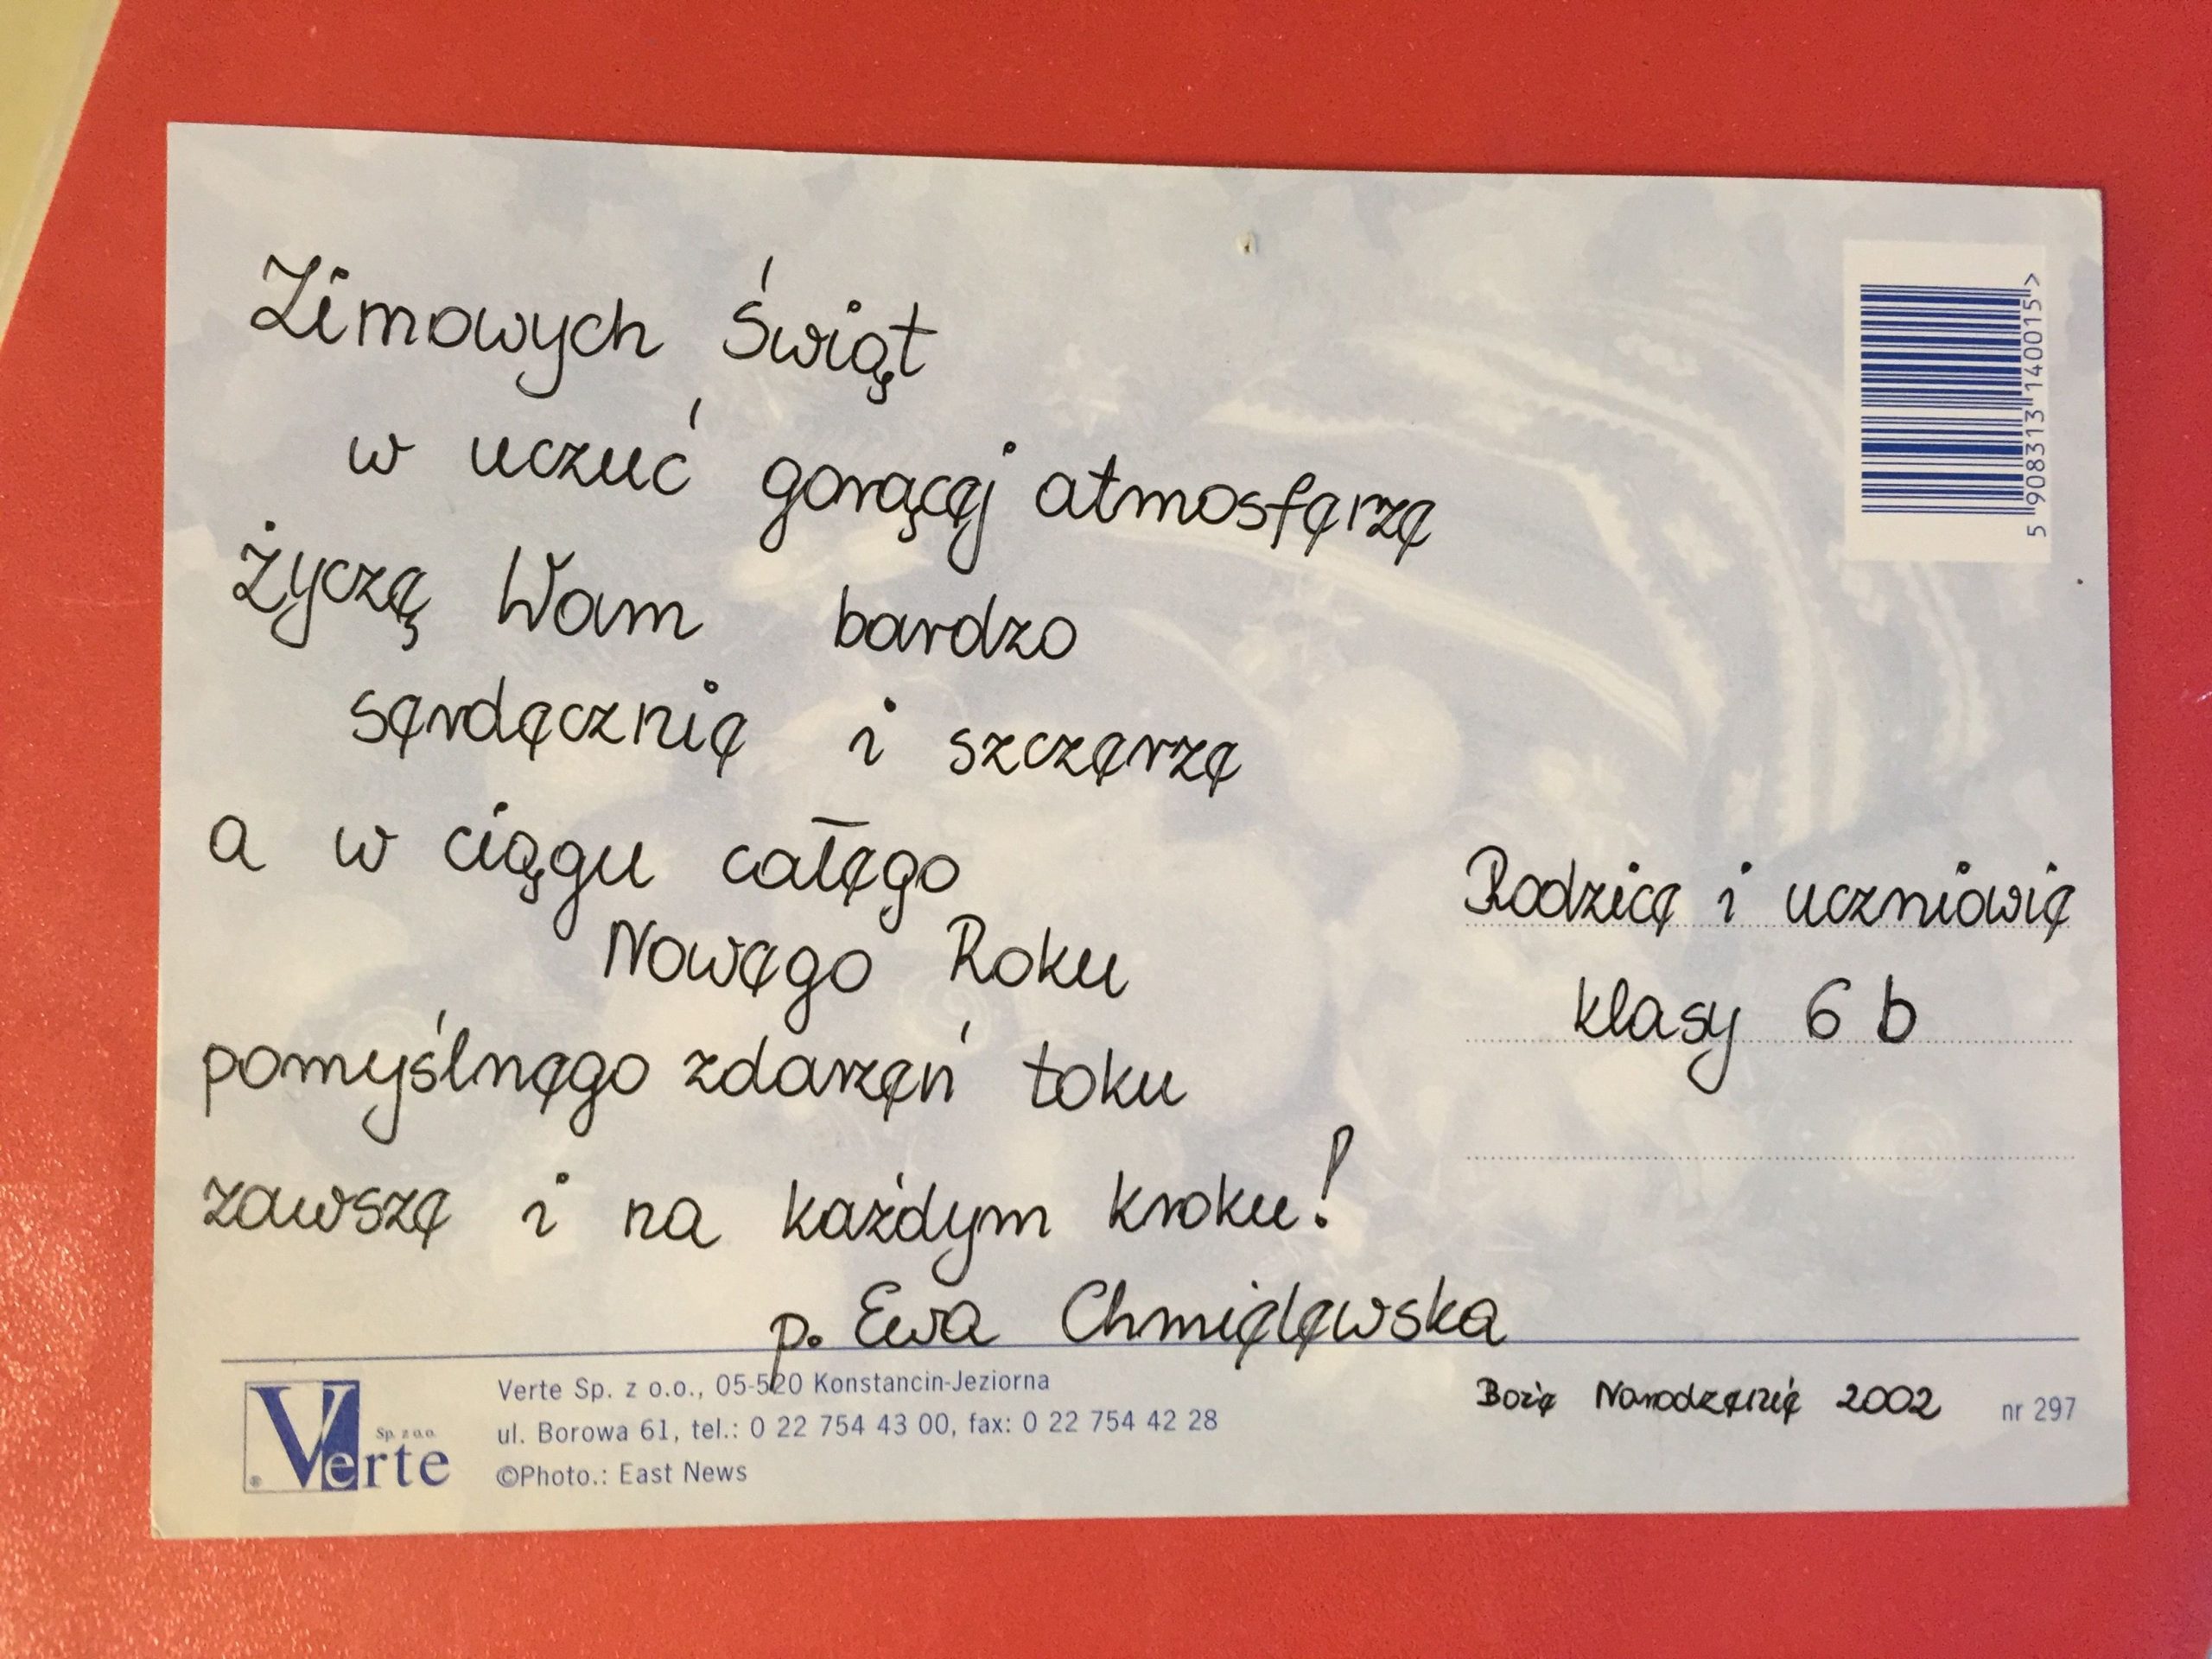 Zimowych Świąt
w uczuć gorącej atmosferze
życzę Wam bardzo
serdecznie i szczerze
a w ciągu całego
Nowego Roku
pomyślnego zdarzeń toku
zawsze i na każdym kroku!
p. Ewa Chmielewska
Rodzice i uczniowie
klasy 6 b
Boże Narodzenie 2002
nr 297
5 908313 140015 >
Verte Sp. z o.o.
Verte Sp. z o.o., 05-520 Konstancin-Jeziorna
ul. Borowa 61, tel.: 0 22 754 43 00, fax: 0 22 754 42 28
©Photo.: East News